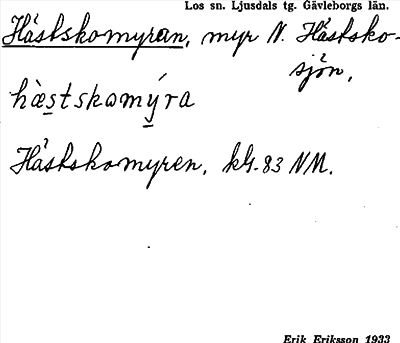 Los sn. Ljusdals tg. Gävleborgs län.
Hästskomyran, myr N. Hästsko-
sjön.
hæ̀stskomýra
Hästskomyren, kG. 83 NM.
Erik Eriksson 1933